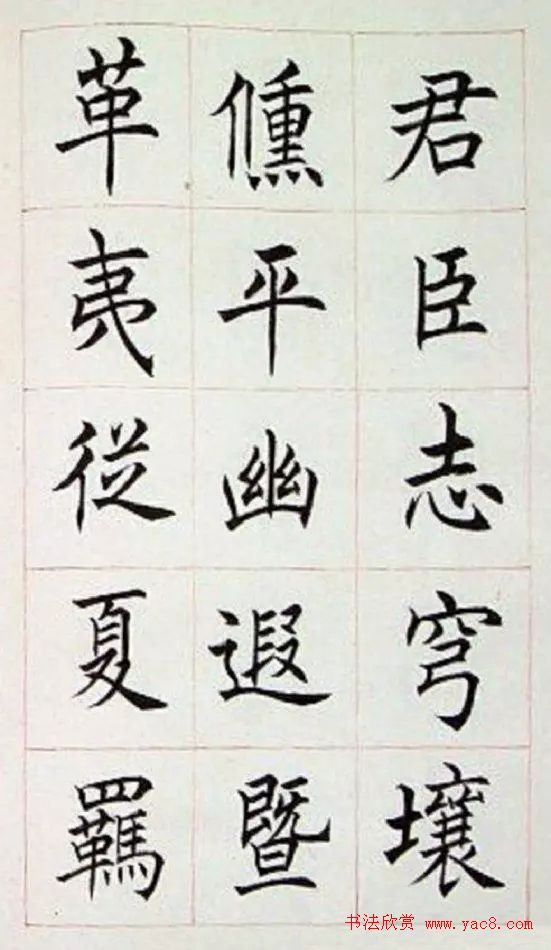 君臣志穹壤
平幽遐暨
革夷従夏羈
书法欣赏 www.yac8.com